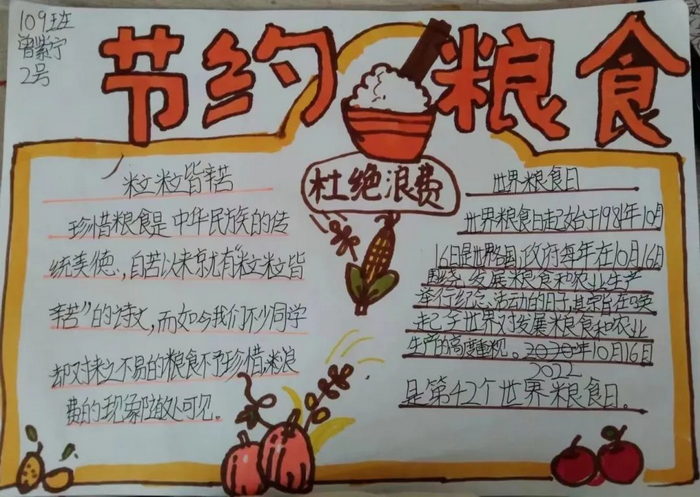 109班
曾紫宁
2号
节约粮食
杜绝浪费
粒粒皆辛苦
珍惜粮食是中华民族的传
统美德.,自苦以来就有"粒粒皆
辛苦"的诗文,而如今我们不少同学
却对来之不易的粮食不予珍惜,粮浪
费的现象随处可见。
世界粮食日
世界粮食日起始于1981年10月
16日是世界各国政府每年在10月16日
围绕发展粮食和农业生产
举行纪念活动的日子,其宗旨在唤
起全世界对发展粮食和农业
生产的高度重视。2020年10月16日
2022
是第42个世界粮食日。